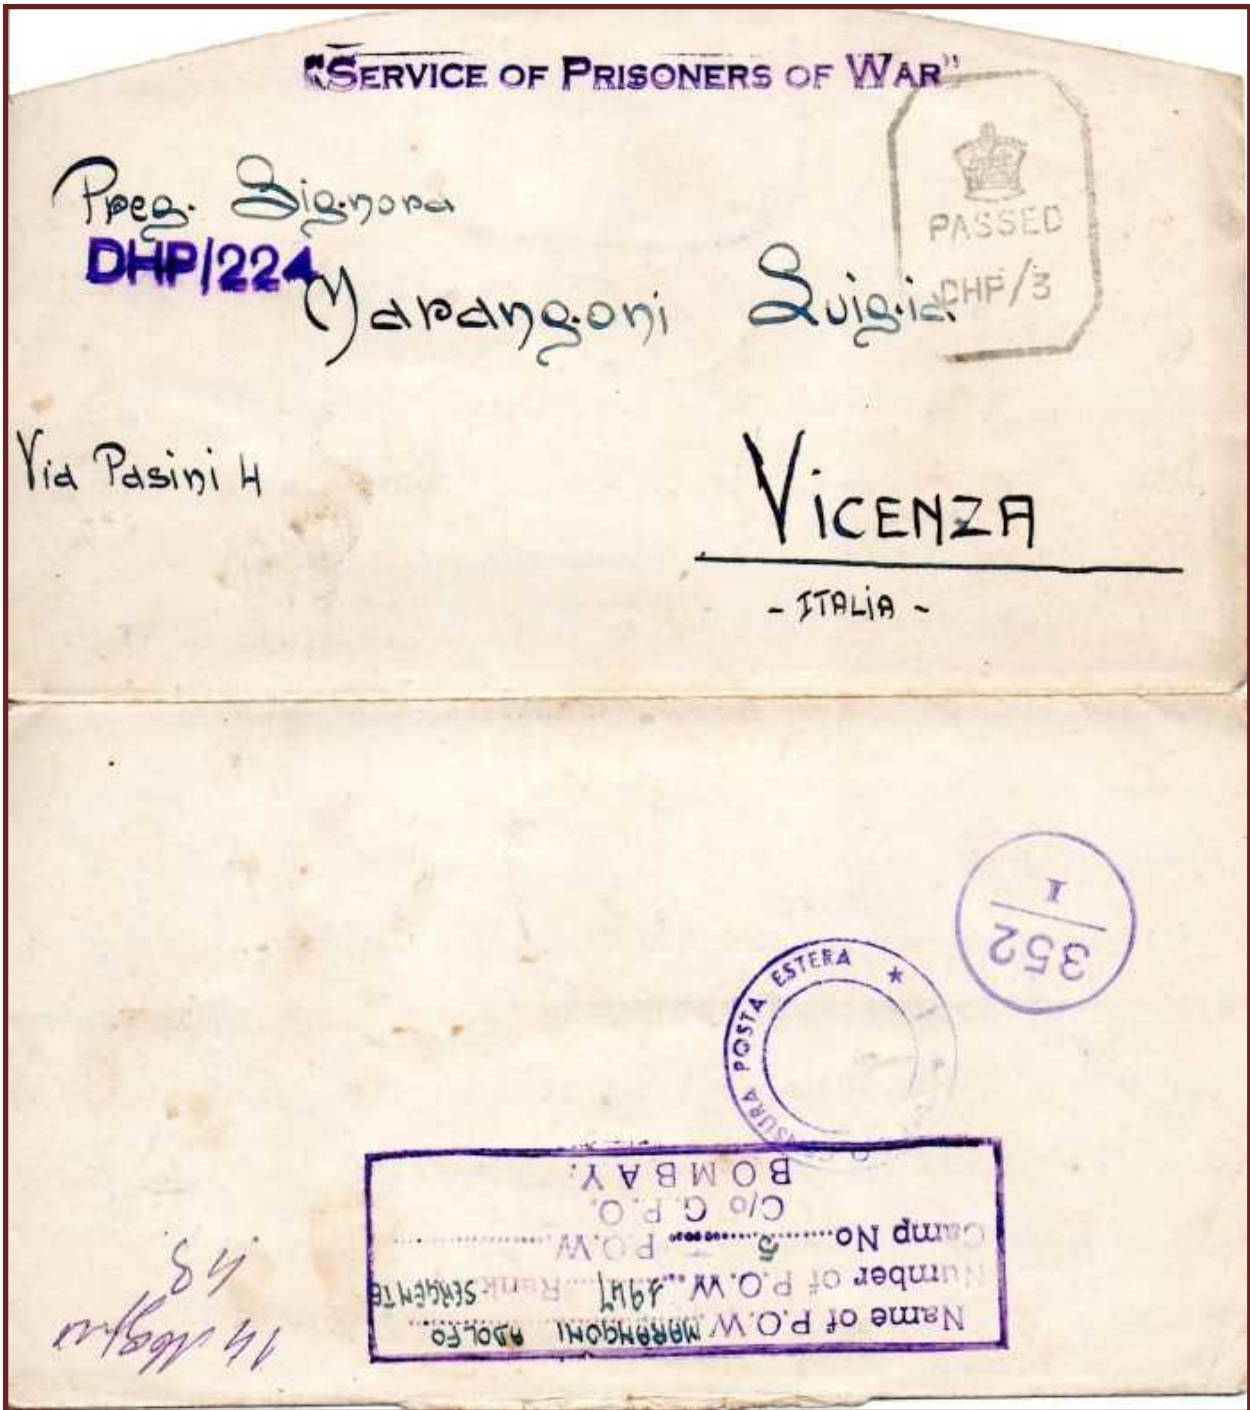 "SERVICE OF PRISONERS OF WAR"
PASSED
DHP/3
Preg. Signora
DHP/224
Marangoni Luigia
Via Pasini 4
VICENZA
- ITALIA -
352
I
POSTA ESTERA
Name of P.O.W. MARANGONI ADOLFO
Number of P.O.W. 1947 Rank SERGENTE
Camp No. 5 P.O.W.
C/o G.P.O.
BOMBAY.
14